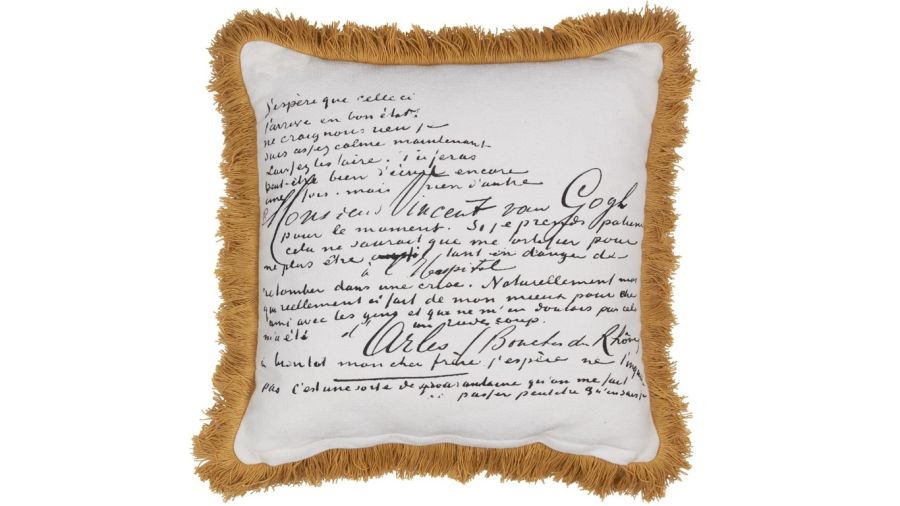 J'espère que celle ci
t'arrive en bon état.
ne craignons rien je
suis assez calme maintenant
Laissez les faire. Tu feras
peut-être bien d'écrire encore
une fois. mais rien d'autre
Monsieur Vincent van Gogh
pour le moment. Si je prends patience
cela ne saurait que me fortifier pour
ne plus être tant en danger de
à l'Hospital
retomber dans une crise. Naturellement moi
qui réellement ai fait de mon mieux pour être
ami avec les gens et que ne m'en doutais pas cela
m'a été un rude coup.
Arles / Bouches du Rhône
à bientôt mon cher frère j'espère ne t'
pas c'est une sorte de quarantaine qu'on me fait
passer peut être